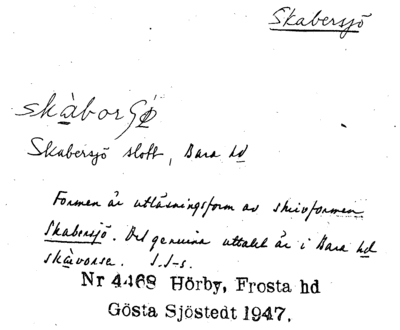 Skabersjö
skàborsjö
Skabersjö slott, Bara hd
Formen är utläsningsform av skrivformen
Skabersjö. Det genuina uttalet är i Bara hd
skàvorsa. I.I-s.
Nr 4468 Hörby, Frosta hd
Gösta Sjöstedt 1947.